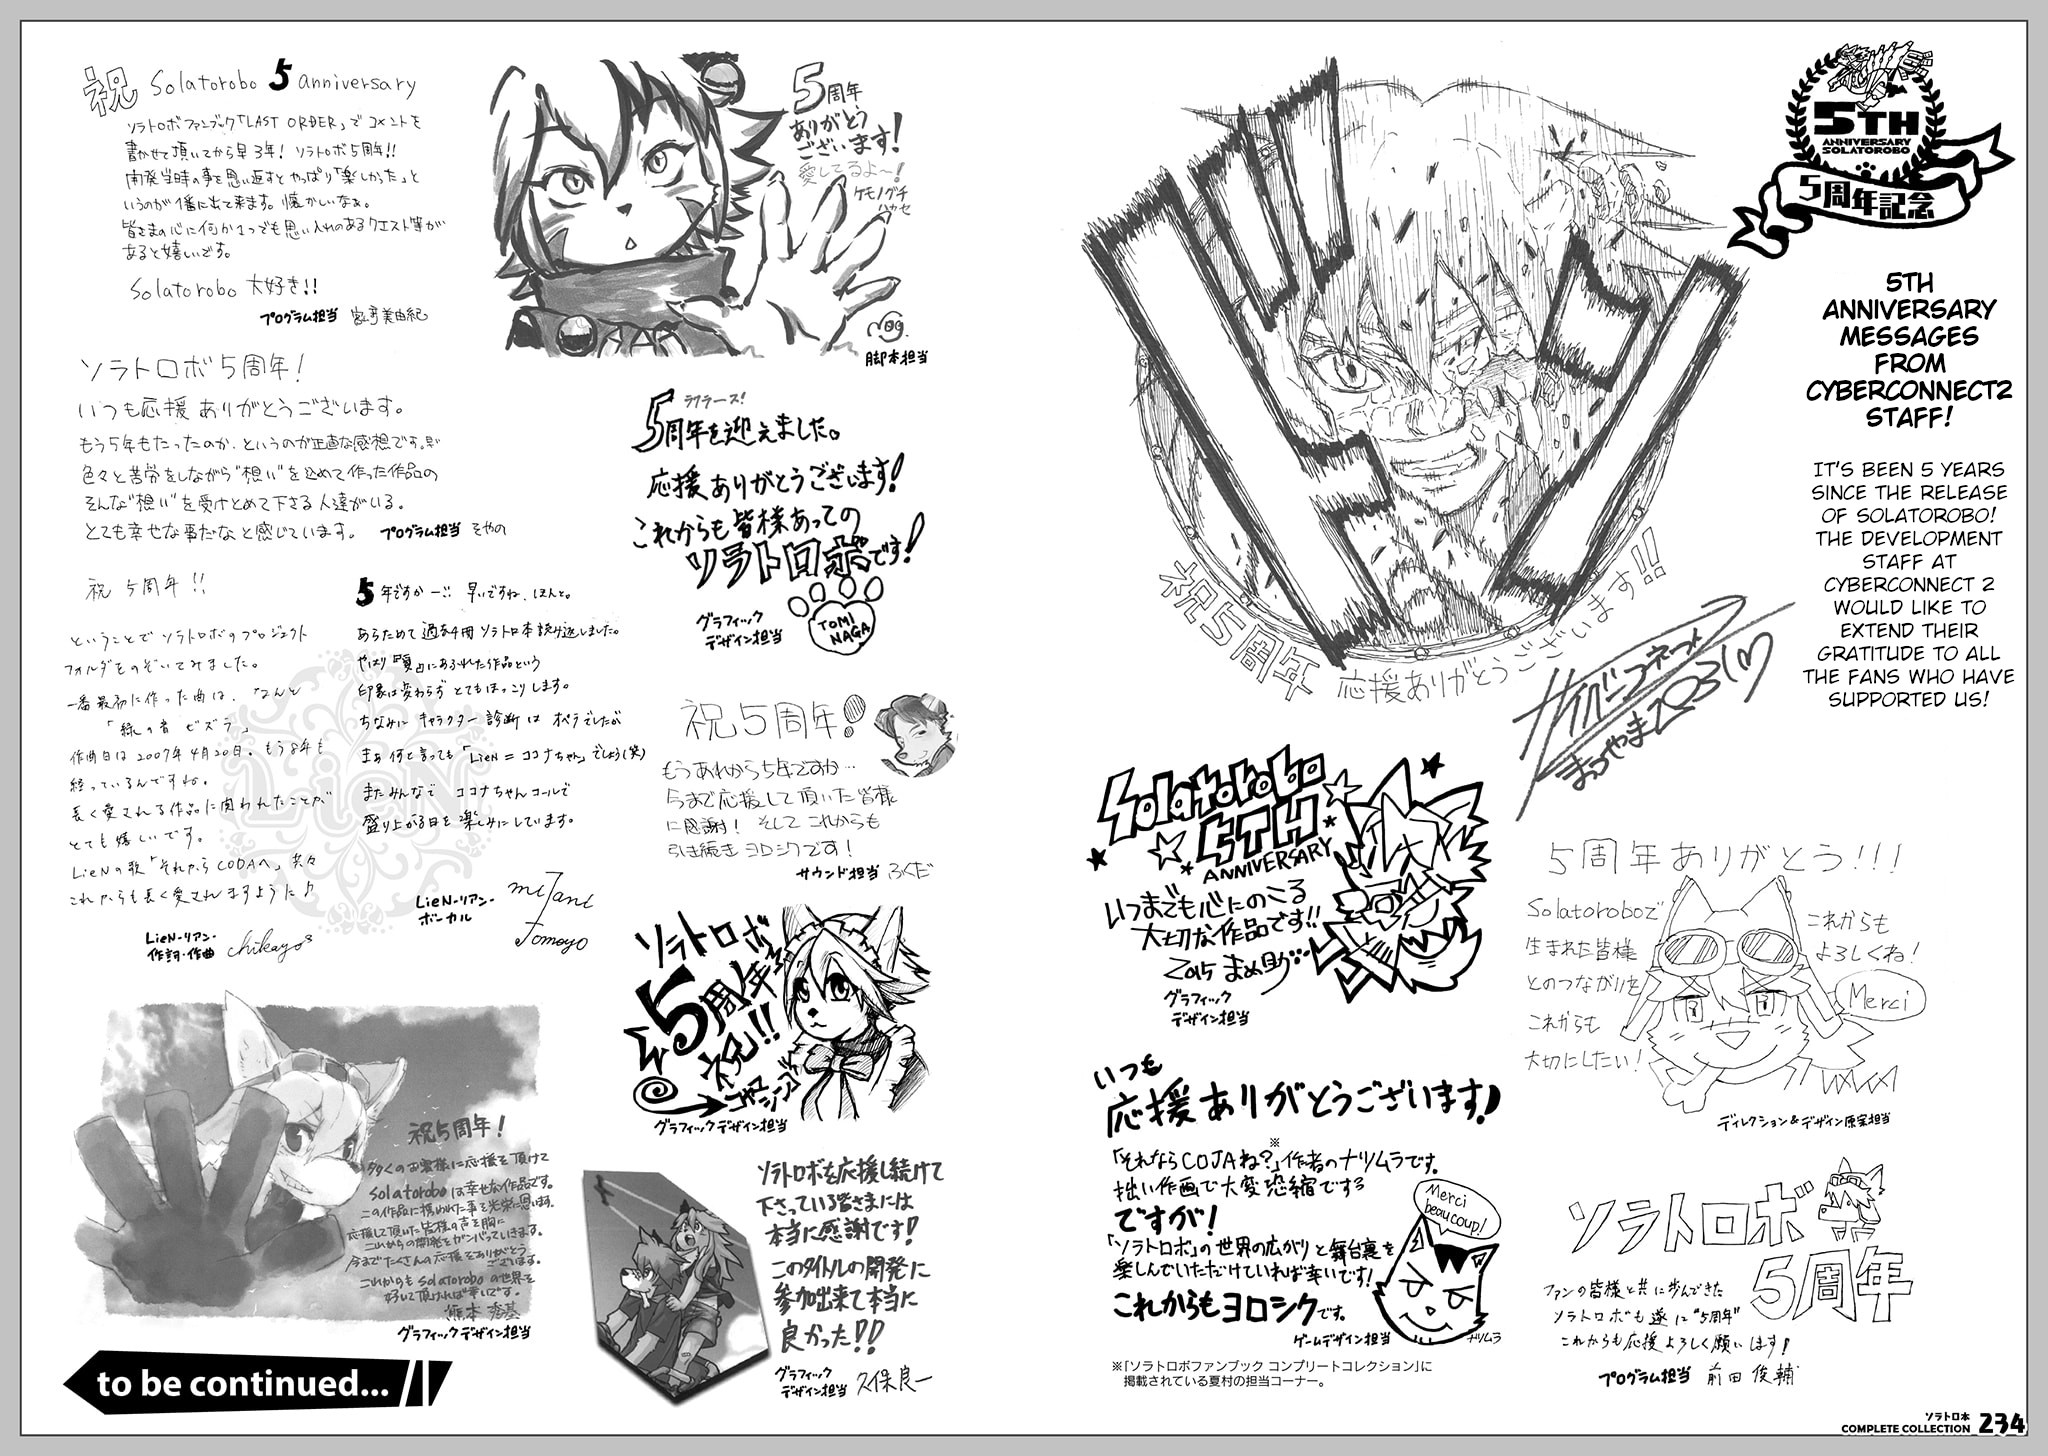 5TH
ANNIVERSARY
SOLATOROBO
5周年記念
5TH
ANNIVERSARY
MESSAGES
FROM
CYBERCONNECT2
STAFF!
IT'S BEEN 5 YEARS
SINCE THE RELEASE
OF SOLATOROBO!
THE DEVELOPMENT
STAFF AT
CYBERCONNECT 2
WOULD LIKE TO
EXTEND THEIR
GRATITUDE TO ALL
THE FANS WHO HAVE
SUPPORTED US!
祝5周年
応援ありがとうございます!!
サイバーコネクトツー
まつやま2031
Solatorobo
5TH
ANNIVERSARY
いつまでも心にのこる
大切な作品です!!
2015 まめ助
グラフィック
デザイン担当
5周年ありがとう!!!
Solatoroboで
生まれた皆様
とのつながりを
これからも
大切にしたい!
これからも
よろしくね!
Merci
ディレクション&デザイン原案担当
いつも
応援ありがとうございます!
※
「それならCOJAね?」作者のナツムラです。
拙い作画で大変恐縮でする
ですが!
「ソラトロボ」の世界の広がりと舞台裏を
楽しんでいただけていれば幸いです!
これからもヨロシクです。
Merci
beaucoup!
ゲームデザイン担当
ナツムラ
※「ソラトロボファンブック コンプリートコレクション」に
掲載されている夏村の担当コーナー。
ソラトロボ
5周年
ファンの皆様と共に歩んできた
ソラトロボも遂に"5周年"
これからも応援よろしく願います!
プログラム担当 前田 俊輔
祝 Solatorobo 5 anniversary
ソラトロボファンブック「LAST ORDER」でコメントを
書かせて頂いてから早3年! ソラトロボ5周年!!
開発当時の事を思い返すとやっぱり「楽しかった」と
いうのが1番に出て来ます。懐かしいなぁ。
皆さまの心に何か1つでも思い入れのあるクエスト等が
あると嬉しいです。
Solatorobo 大好き!!
プログラム担当
美由紀
5周年
ありがとう
ございます!
愛してるよ〜!
ケモノグチ
ハカセ
脚本担当
ソラトロボ5周年!
いつも応援ありがとうございます。
もう5年もたったのか、というのが正直な感想です。が
色々と苦労をしながら"想い"を込めて作った作品の
そんな"想い"を受けとめて下さる人達がいる。
とても幸せな事だなと感じています。 プログラム担当 そやの
ラフラース!
5周年を迎えました。
応援ありがとうございます!
これからも皆様あっての
ソラトロボです!
グラフィック
デザイン担当
TOMI
NAGA
祝 5周年!!
ということでソラトロボのプロジェクト
フォルダをのぞいてみました。
一番最初に作った曲は、なんと
「緑の者 ビズラ」
作曲日は2007年4月20日。もう8年も
経っているんですね。
長く愛される作品に関われたことが
とても嬉しいです。
LieNの歌「それからCODAへ」共々
これからも長く愛されますように♪
LieN-リアン-
作詞・作曲 chikayo
LieN
5年ですかー… 早いですね、ほんと。
あらためて過去4冊ソラトロ本読み返しました。
やはり「夏」にあふれた作品という
印象は変わらず とてもほっこりします。
ちなみに キャラクター診断は オペラでしたが
まぁ何と言っても「LieN=ココナちゃん」でしょう(笑)
またみんなで ココナちゃんコールで
盛り上がる日を楽しみにしています。
LieN-リアン-
ボーカル
mitani
Tomoyo
祝5周年!
もうあれから5年ですか…
今まで応援して頂いた皆様
に感謝! そしてこれからも
引き続き ヨロシクです!
サウンド担当 ふくだ
ソラトロボ
5周年
祝!!
グラフィックデザイン担当
祝5周年!
多くのお客様に応援を頂けて
Solatoroboは幸せな作品です。
この作品に携われた事を光栄に思います。
応援して頂いた皆様の声を胸に
これからの開発をガンバっていきます。
今までたくさんの応援をありがとう
ございます。
これからもsolatoroboの世界を
好いて頂ければ幸いです。
熊本 秀基
グラフィックデザイン担当
ソラトロボを応援し続けて
下さっている皆さまには
本当に感謝です!
このタイトルの開発に
参加出来て本当に
良かった!!
グラフィック
デザイン担当 久保良一
to be continued...
ソラトロ本
COMPLETE COLLECTION 234